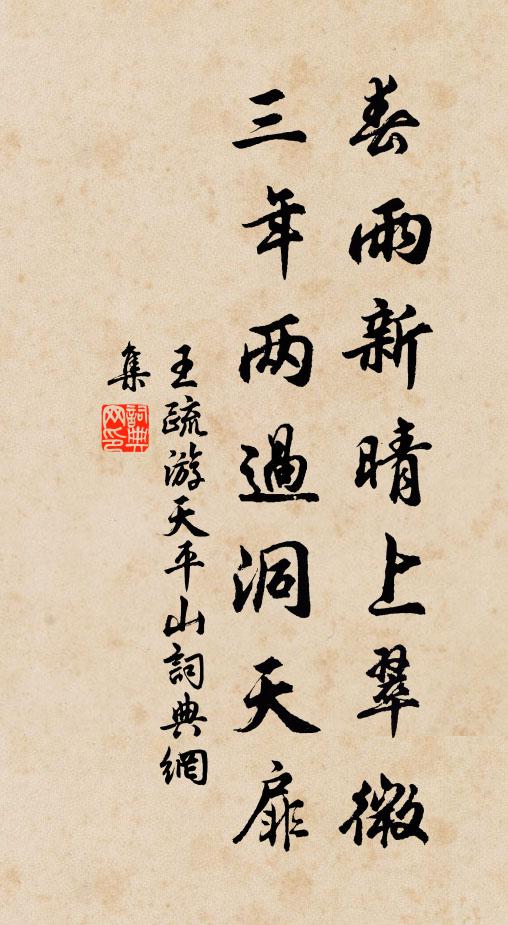 春雨新晴上翠微
三年两過洞天扉
王疏游天平山詞典網
集
詞典网印